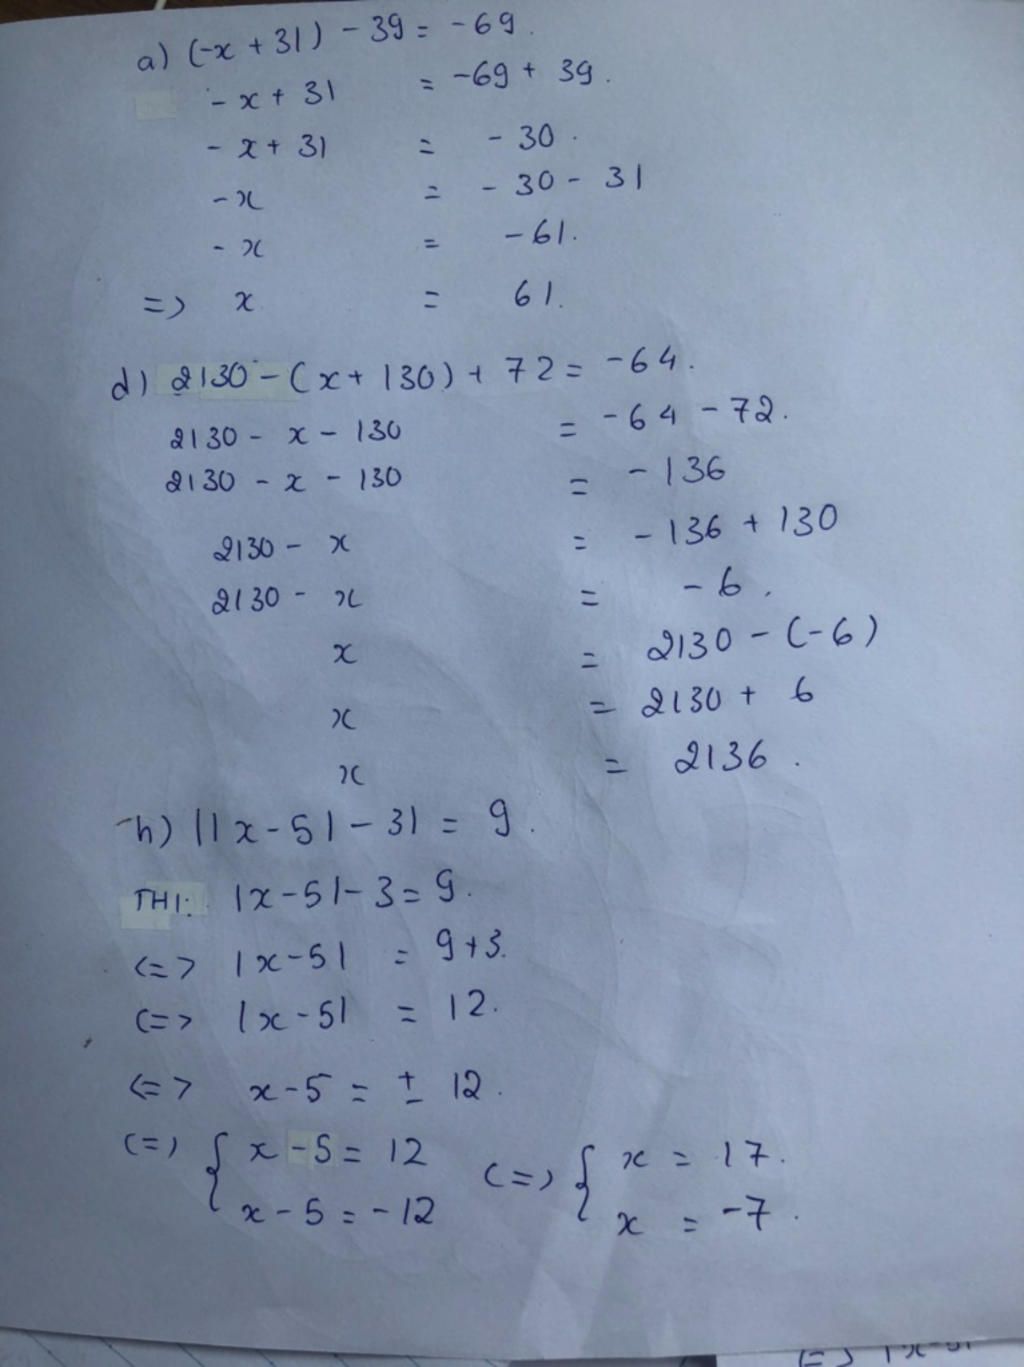 a) (-x + 31) - 39 = -69.
- x + 31 = -69 + 39.
- x + 31 = - 30.
- x = - 30 - 31
- x = - 61.
=> x = 61.
d) 2130 - (x + 130) + 72 = -64.
2130 - x - 130 = -64 - 72.
2130 - x - 130 = - 136
2130 - x = - 136 + 130
2130 - x = - 6.
x = 2130 - (-6)
x = 2130 + 6
x = 2136.
h) ||x - 5| - 3| = 9.
TH1: |x - 5| - 3 = 9.
<=> |x - 5| = 9 + 3.
<=> |x - 5| = 12.
<=> x - 5 = ± 12.
<=> { x - 5 = 12 <=> { x = 17.
x - 5 = - 12 x = -7.